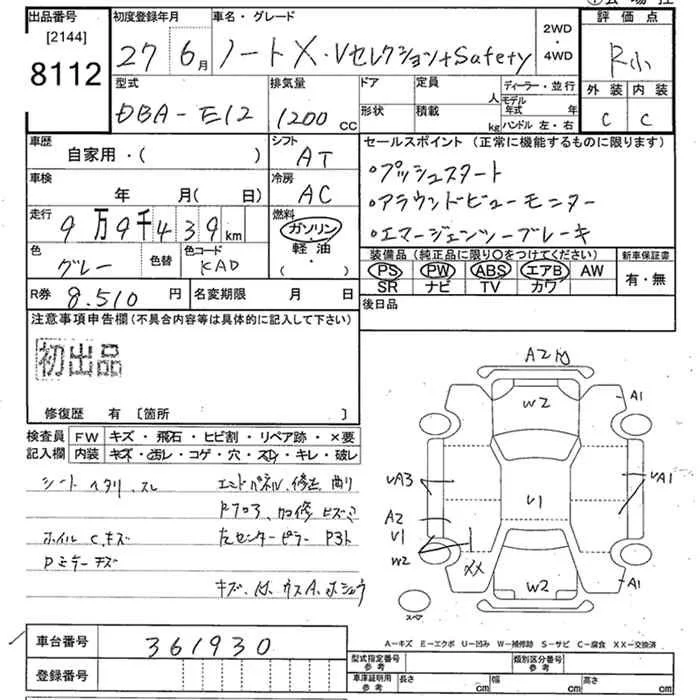 出品番号
[2144]
8112
初度登録年月
27 6月
車名・グレード
ノートX・Vセレクション+Safety
2WD
・
4WD
評価点
R小
外装 内装
C C
型式
DBA-E12
排気量
1200cc
ドア
形状
定員
人
積載
kg
ディーラー・並行
モデル年式 年
ハンドル 左・右
車歴
自家用・( )
シフト
AT
車検
年 月( 日)
冷房
AC
走行
9万9千439km
燃料
ガソリン
・
軽油
・
( )
色
グレー
色替
色コード
KAD
R券
8.510円
名変期限 月 日
セールスポイント(正常に機能するものに限ります)
・プッシュスタート
・アラウンドビューモニター
・エマージェンツーブレーキ
装備品(純正品に限り〇をつけてください)
新車保証書
PS PW ABS エアB AW
SR ナビ TV カワ
有・無
後日品
注意事項申告欄(不具合内容等は具体的に記入して下さい)
初出品
修復歴 有 [箇所 ]
検査員
記入欄
FW キズ・飛石・ヒビ割・リペア跡・×要
内装 キズ・汚レ・コゲ・穴・スレ・キレ・破レ
シート ヘタリ、スレ
エンドパネル、修正、曲り
ホイル Cキズ
左センターピラー P3ト
Pミラーキズ
A2
W2
A1
UA3
UA1
A2
U1
U1
W2
XX
W2
A1
スペア
A-キズ E-エクボ U-凹み W-補修跡 S-サビ C-腐食 XX-交換済
車台番号
361930
登録番号
型式指定番号
参考
類別区分番号
参考
車庫証明用
参考
長さ cm 幅 cm 高さ cm